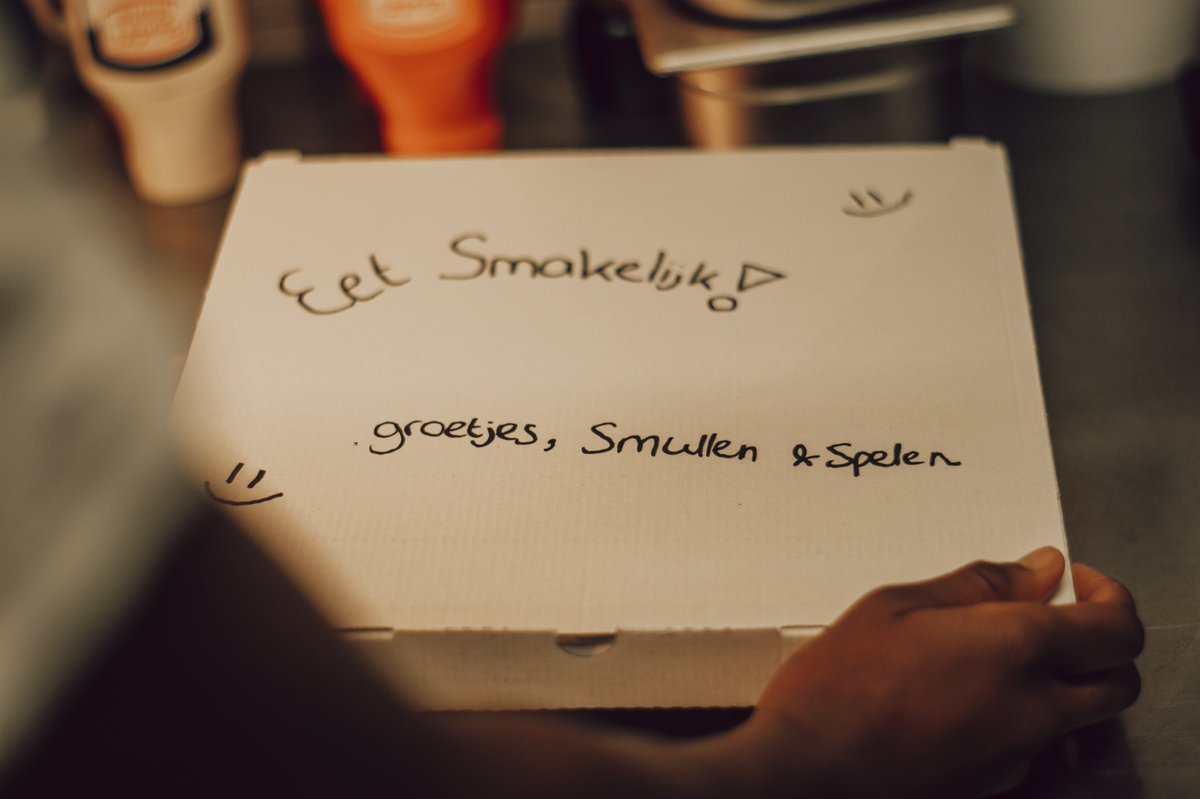 Eet Smakelijk!
groetjes, Smullen & Spelen